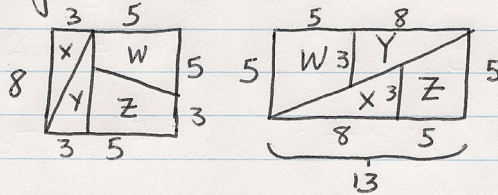 3 5
X W
8 5
Y Z 3
3 5
5 8
W 3 Y
5 5
X 3 Z
8 5
13